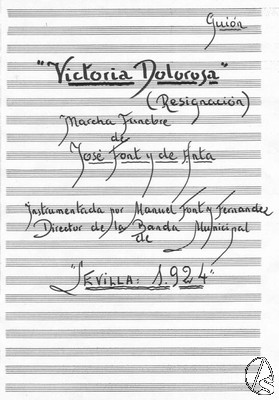 Guión
"Victoria Dolorosa"
(Resignación)
Marcha Fúnebre
de
José Font y de Anta
Instrumentada por Manuel Font y Fernandez
Director de la Banda Municipal
de
"Sevilla: 1.924"